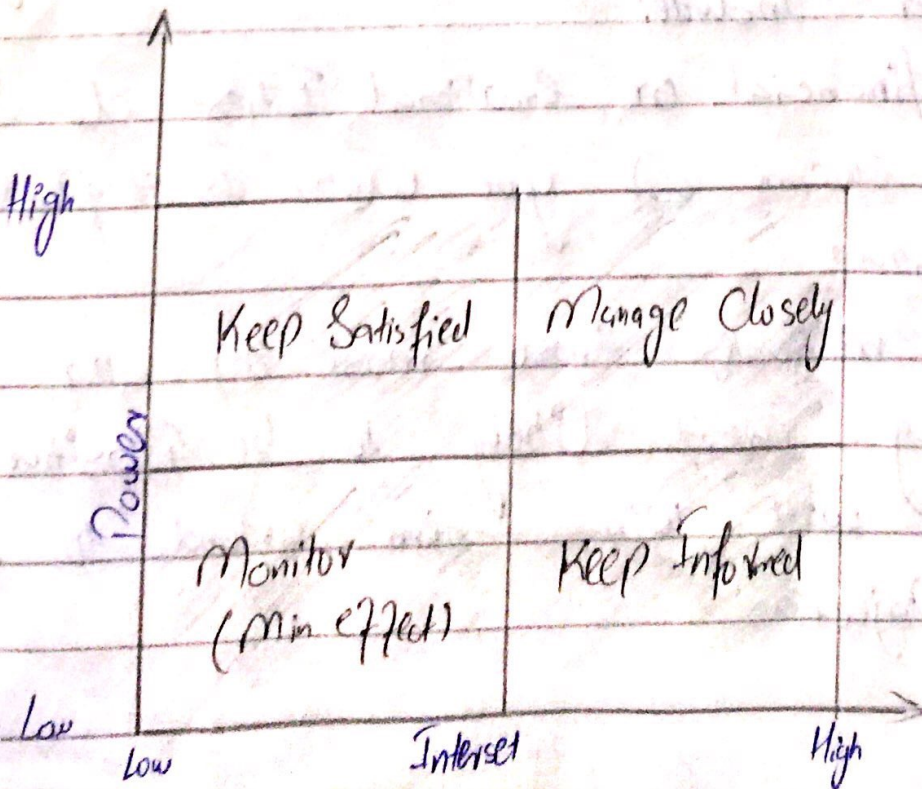 High
Keep Satisfied
Manage Closely
Power
Monitor
(Min effect)
Keep Informed
Low
Low
Interset
High